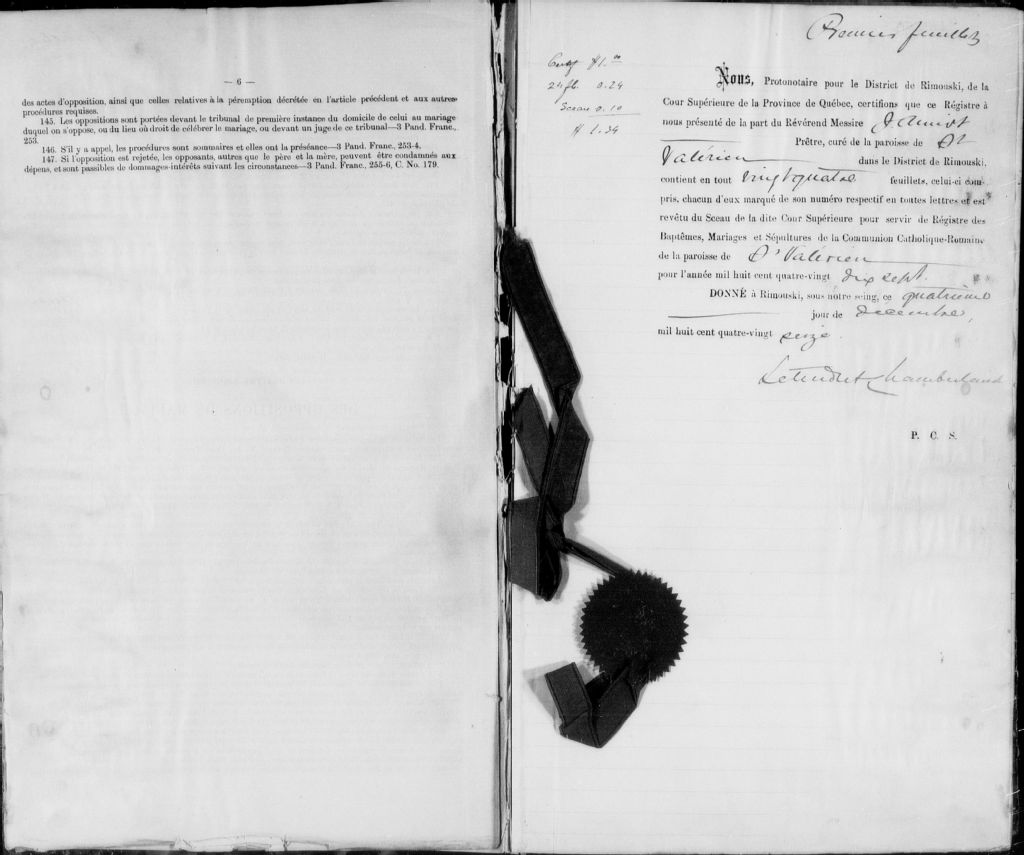 — 6 —
des actes d'opposition, ainsi que celles relatives à la péremption décrétée en l'article précédent et aux autres
procédures requises.
145. Les oppositions sont portées devant le tribunal de première instance du domicile de celui au mariage
duquel on s'oppose, ou du lieu où droit de célébrer le mariage, ou devant un juge de ce tribunal—3 Pand. Franc.,
253.
146. S'il y a appel, les procédures sont sommaires et elles ont la préséance—3 Pand. Franc., 253-4.
147. Si l'opposition est rejetée, les opposants, autres que le père et la mère, peuvent être condamnés aux
dépens, et sont passibles de dommages-intérêts suivant les circonstances—3 Pand. Franc., 255-6, C. No. 179.
Premier feuillet
$1.00
24 fl. 0.24
Sceau 0.10
$ 1.34
Nous, Protonotaire pour le District de Rimouski, de la
Cour Supérieure de la Province de Québec, certifions que ce Régistre à
nous présenté de la part du Révérend Messire
Prêtre, curé de la paroisse de St
Valérien dans le District de Rimouski,
contient en tout vingt quatre feuillets, celui-ci com-
pris, chacun d'eux marqué de son numéro respectif en toutes lettres et est
revêtu du Sceau de la dite Cour Supérieure pour servir de Régistre des
Baptêmes, Mariages et Sépultures de la Communion Catholique-Romaine
de la paroisse de St Valérien
pour l'année mil huit cent quatre-vingt dix sept.
DONNÉ à Rimouski, sous notre seing, ce quatrième
jour de décembre,
mil huit cent quatre-vingt seize.
Letendre & Chamberland
P. C. S.